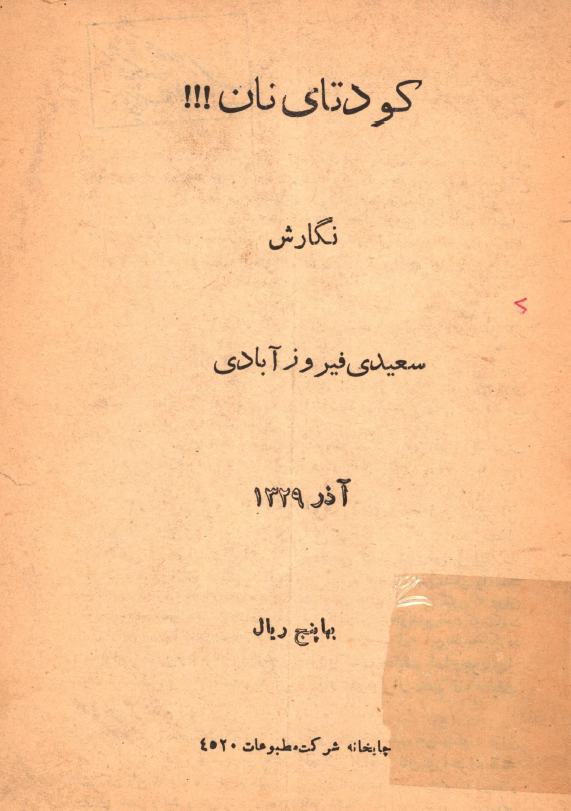 کودتای نان !!!
نگارش
سعیدی فیروزآبادی
آذر ۱۳۲۹
بها پنج ریال
چاپخانه شرکت مطبوعات ۴۵۲۰